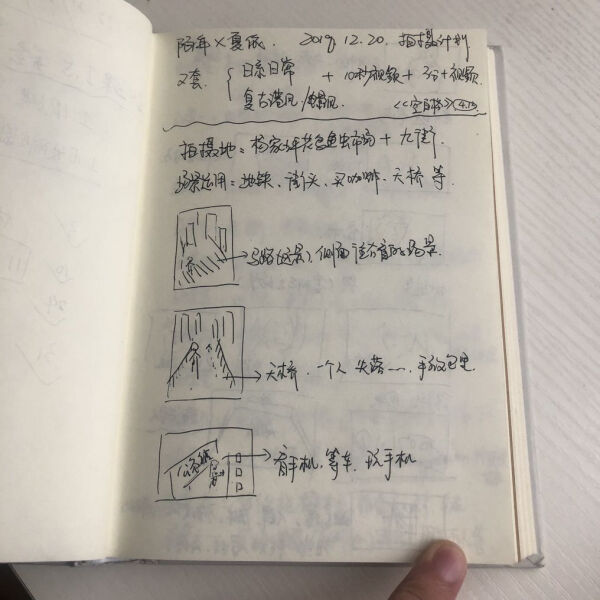 陌年×夏沫. 2019.12.20. 拍摄计划
又套. { 日系日常 + 10秒视频 + 3分+视频.
复古港风/ 风. 《空白格》
拍摄地: 杨家坪花鸟鱼虫市场 + 九街.
场景运用: 地铁、街头、买咖啡、天桥 等.
马路(远景), 侧面 场景.
天桥. 一个人 失落……手放包里
公交站
看手机, 等车, 玩手机